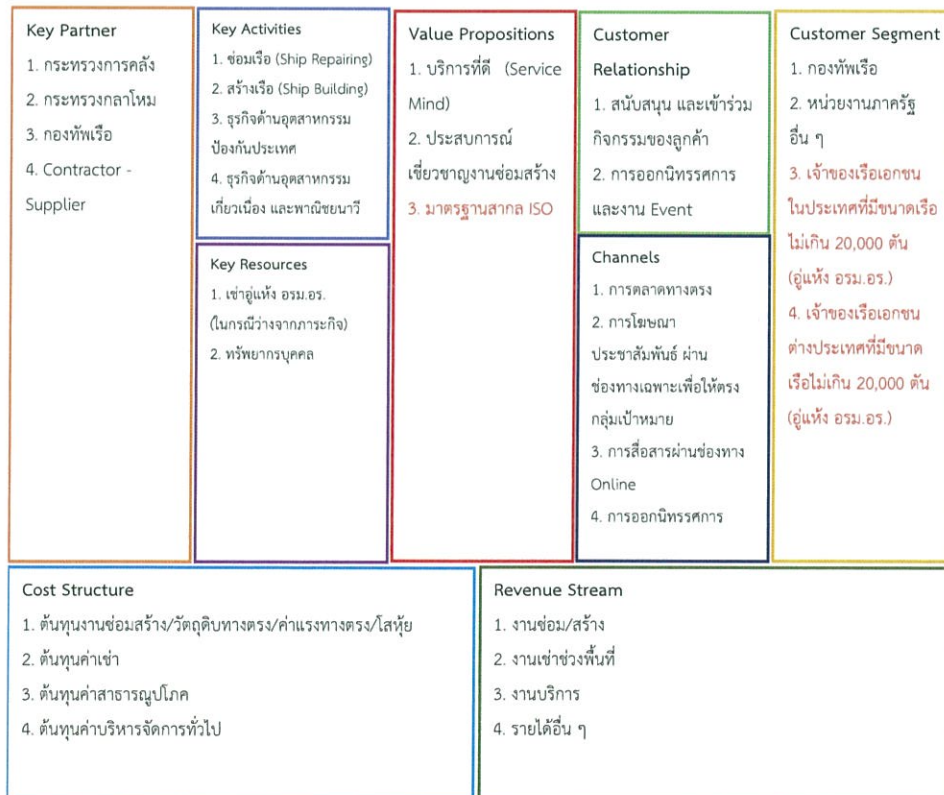 Key Partner
1. กระทรวงการคลัง
2. กระทรวงกลาโหม
3. กองทัพเรือ
4. Contractor -
Supplier
Key Activities
1. ซ่อมเรือ (Ship Repairing)
2. สร้างเรือ (Ship Building)
3. ธุรกิจด้านอุตสาหกรรม
ป้องกันประเทศ
4. ธุรกิจด้านอุตสาหกรรม
เกี่ยวเนื่อง และพาณิชยนาวี
Key Resources
1. เช่าอู่แห้ง อรม.อร.
(ในกรณีว่างจากภาระกิจ)
2. ทรัพยากรบุคคล
Value Propositions
1. บริการที่ดี (Service
Mind)
2. ประสบการณ์
เชี่ยวชาญงานซ่อมสร้าง
3. มาตรฐานสากล ISO
Customer
Relationship
1. สนับสนุน และเข้าร่วม
กิจกรรมของลูกค้า
2. การออกนิทรรศการ
และงาน Event
Channels
1. การตลาดทางตรง
2. การโฆษณา
ประชาสัมพันธ์ ผ่าน
ช่องทางเฉพาะเพื่อให้ตรง
กลุ่มเป้าหมาย
3. การสื่อสารผ่านช่องทาง
Online
4. การออกนิทรรศการ
Customer Segment
1. กองทัพเรือ
2. หน่วยงานภาครัฐ
อื่น ๆ
3. เจ้าของเรือเอกชน
ในประเทศที่มีขนาดเรือ
ไม่เกิน 20,000 ตัน
(อู่แห้ง อรม.อร.)
4. เจ้าของเรือเอกชน
ต่างประเทศที่มีขนาด
เรือไม่เกิน 20,000 ตัน
(อู่แห้ง อรม.อร.)
Cost Structure
1. ต้นทุนงานซ่อมสร้าง/วัตถุดิบทางตรง/ค่าแรงทางตรง/โสหุ้ย
2. ต้นทุนค่าเช่า
3. ต้นทุนค่าสาธารณูปโภค
4. ต้นทุนค่าบริหารจัดการทั่วไป
Revenue Stream
1. งานซ่อม/สร้าง
2. งานเช่าช่วงพื้นที่
3. งานบริการ
4. รายได้อื่น ๆ